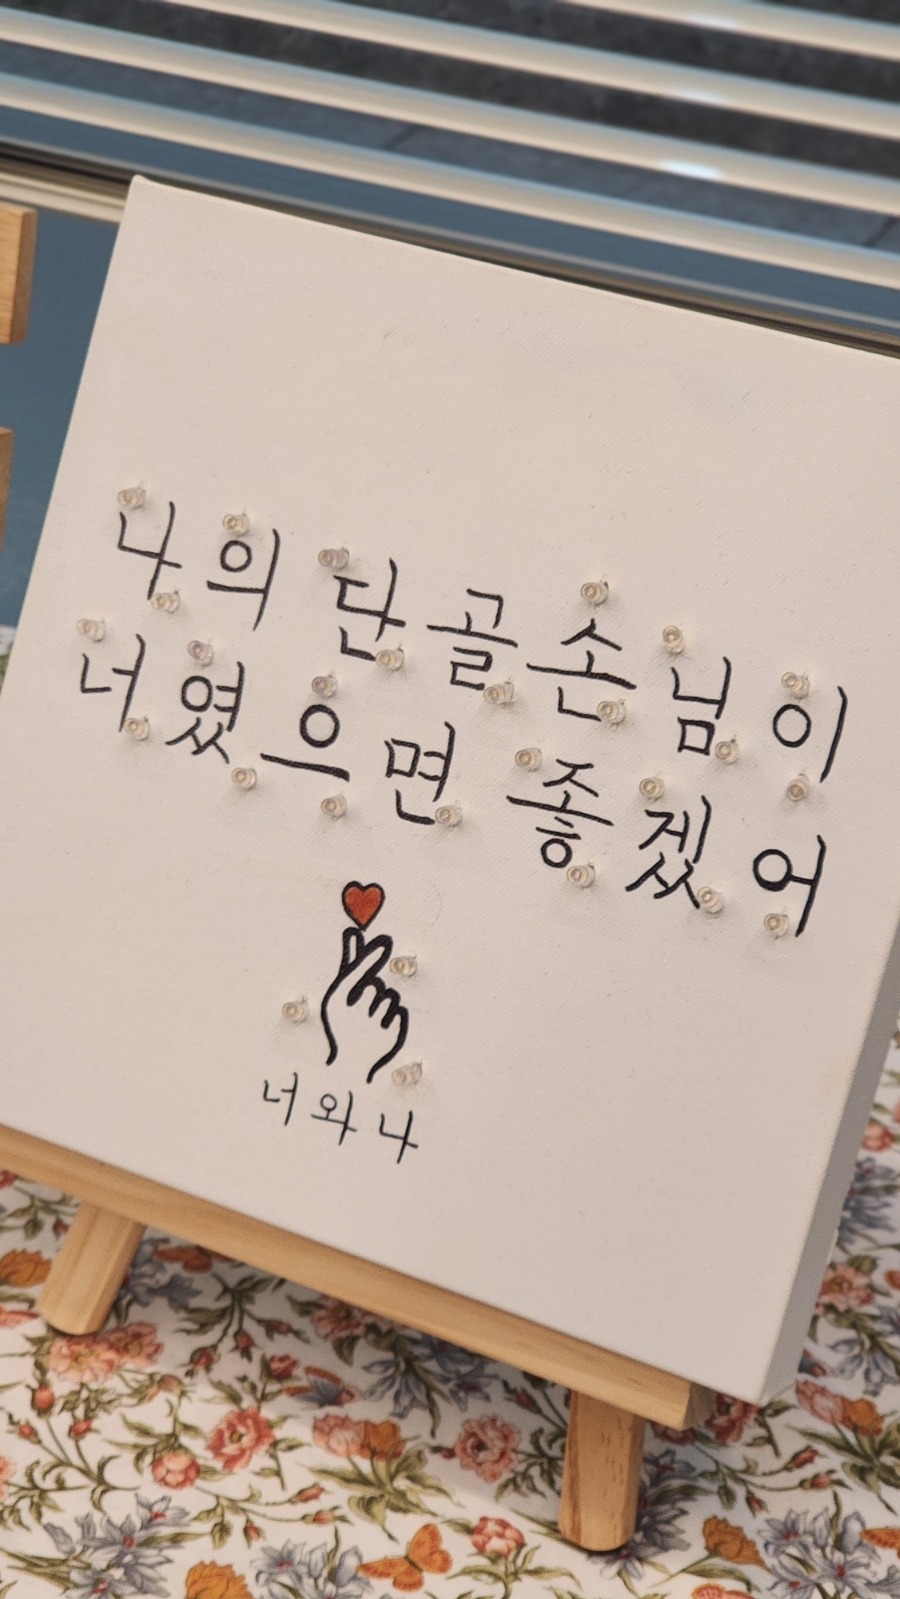 나의 단골손님이
너였으면 좋겠어
너와 나